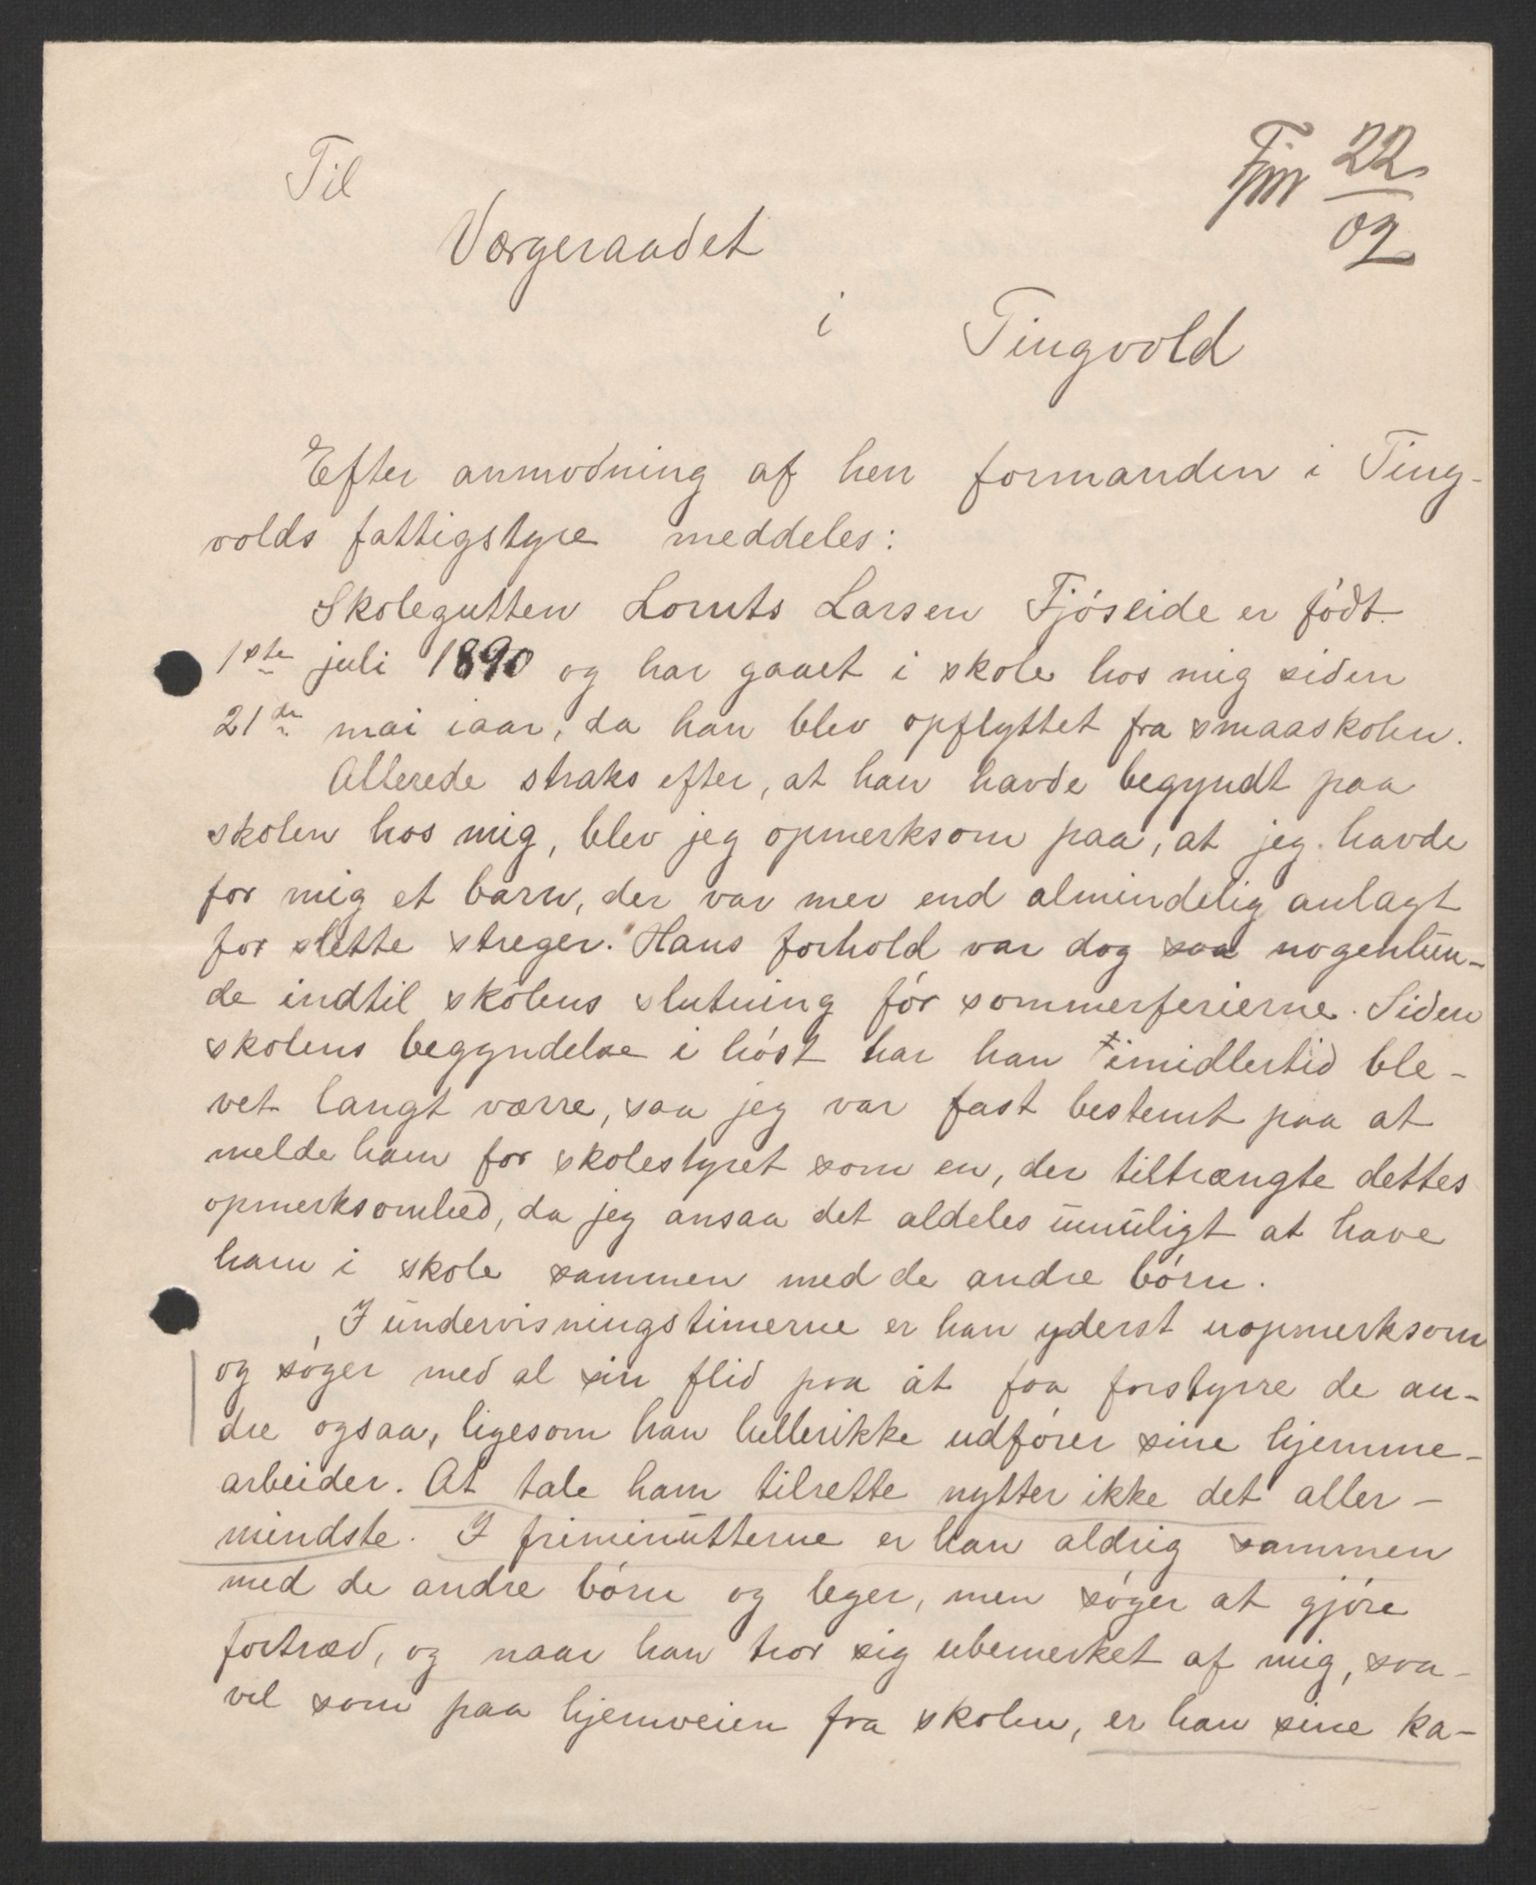 Til
22
02
Værgeraadet
i Tingvold
Efter anmodning af herr formanden i Ting-
volds fattigstyre meddeles:
Skolegutten Loruts Larsen Fjøseide er født
1ste juli 1890 og har gaaet i skole hos mig siden
21de mai iaar, da han blev opflyttet fra smaaskolen.
Allerede straks efter, at han havde begyndt paa
skolen hos mig, blev jeg opmerksom paa, at jeg havde
for mig et barn, der var mer end almindelig anlagt
for slette streger. Hans forhold var dog saa nogenlun-
de indtil skolens slutning før sommerferierne. Siden
skolens begyndelse i høst har han imidlertid ble-
vet langt værre, saa jeg var fast bestemt paa at
melde ham for skolestyret som en, der tiltrængte dettes
opmerksomhed, da jeg ansaa det aldeles umuligt at have
ham i skole sammen med de andre børn.
I undervisningstimerne er han yderst uopmerksom
og søger med al sin flid paa at faa forstyrre de an-
dre ogsaa, ligesom han hellerikke udfører sine hjemme-
arbeider. At tale ham tilrette nytter ikke det aller-
mindste. I friminutterne er han aldrig sammen
med de andre børn og leger, men søger at gjøre
fortræd, og naar han tror sig ubemerket af mig, saa-
vel som paa hjemveien fra skolen, er han sine ka-